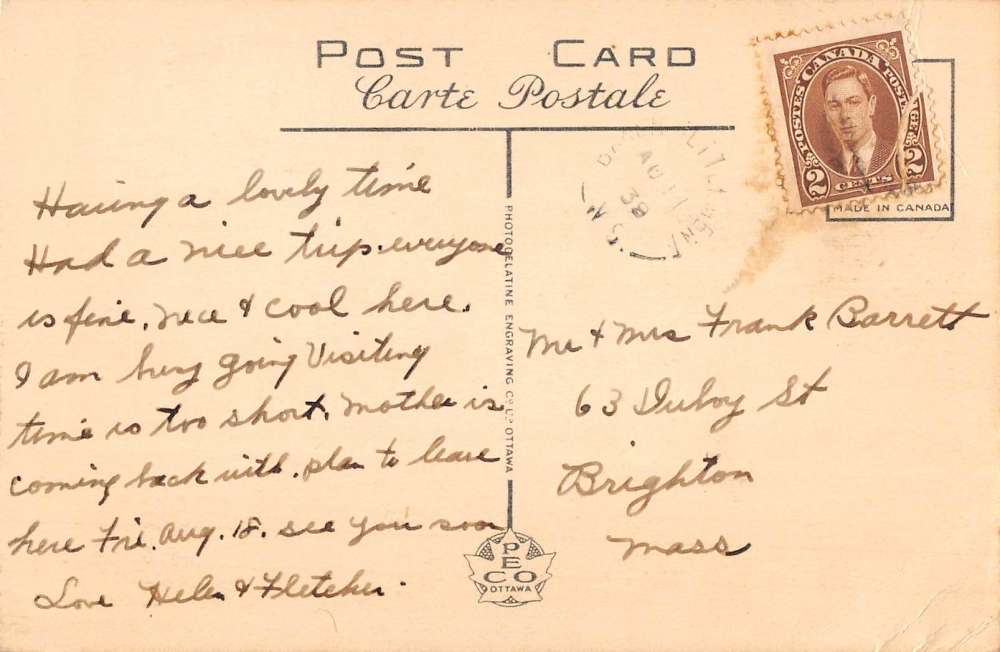 POST CARD
Carte Postale
CANADA
POSTES POSTAGE
2 CENTS 2
MADE IN CANADA
AU 11
39
N.S.
Having a lovely time
Had a nice trip. everyone
is fine. nice & cool here.
I am busy going Visiting
time is too short. Mother is
coming back with. plan to leave
here Fri. Aug. 18. see you soon
Love Helen & Fletcher.
PHOTOGELATINE ENGRAVING CO. LTD. OTTAWA
Mr + Mrs Frank Barrett
63 St
Brighton
Mass
PECO
OTTAWA